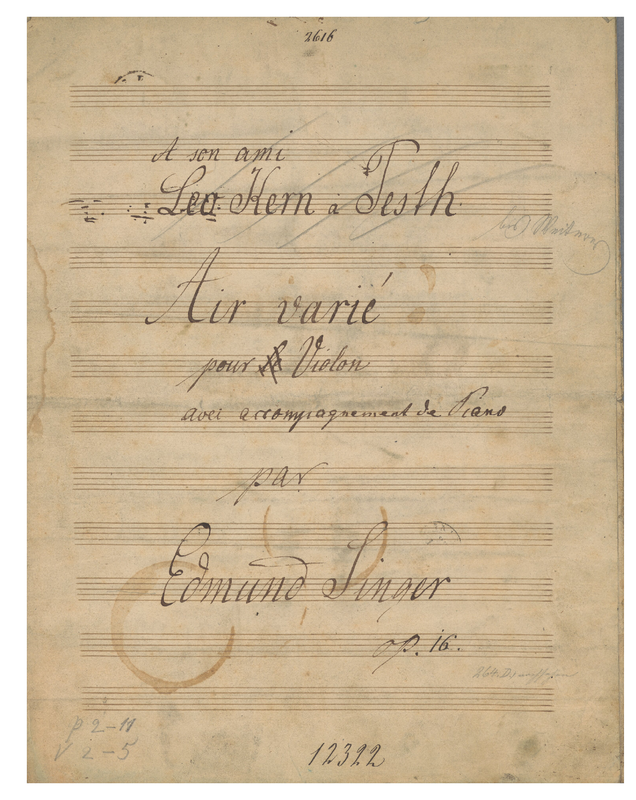 2616
A son ami
Leo Kern à Pesth
Air varié
pour Violon
avec accompagnement de Piano
par
Edmund Singer
op. 16.
p 2-11
v 2-5
12322